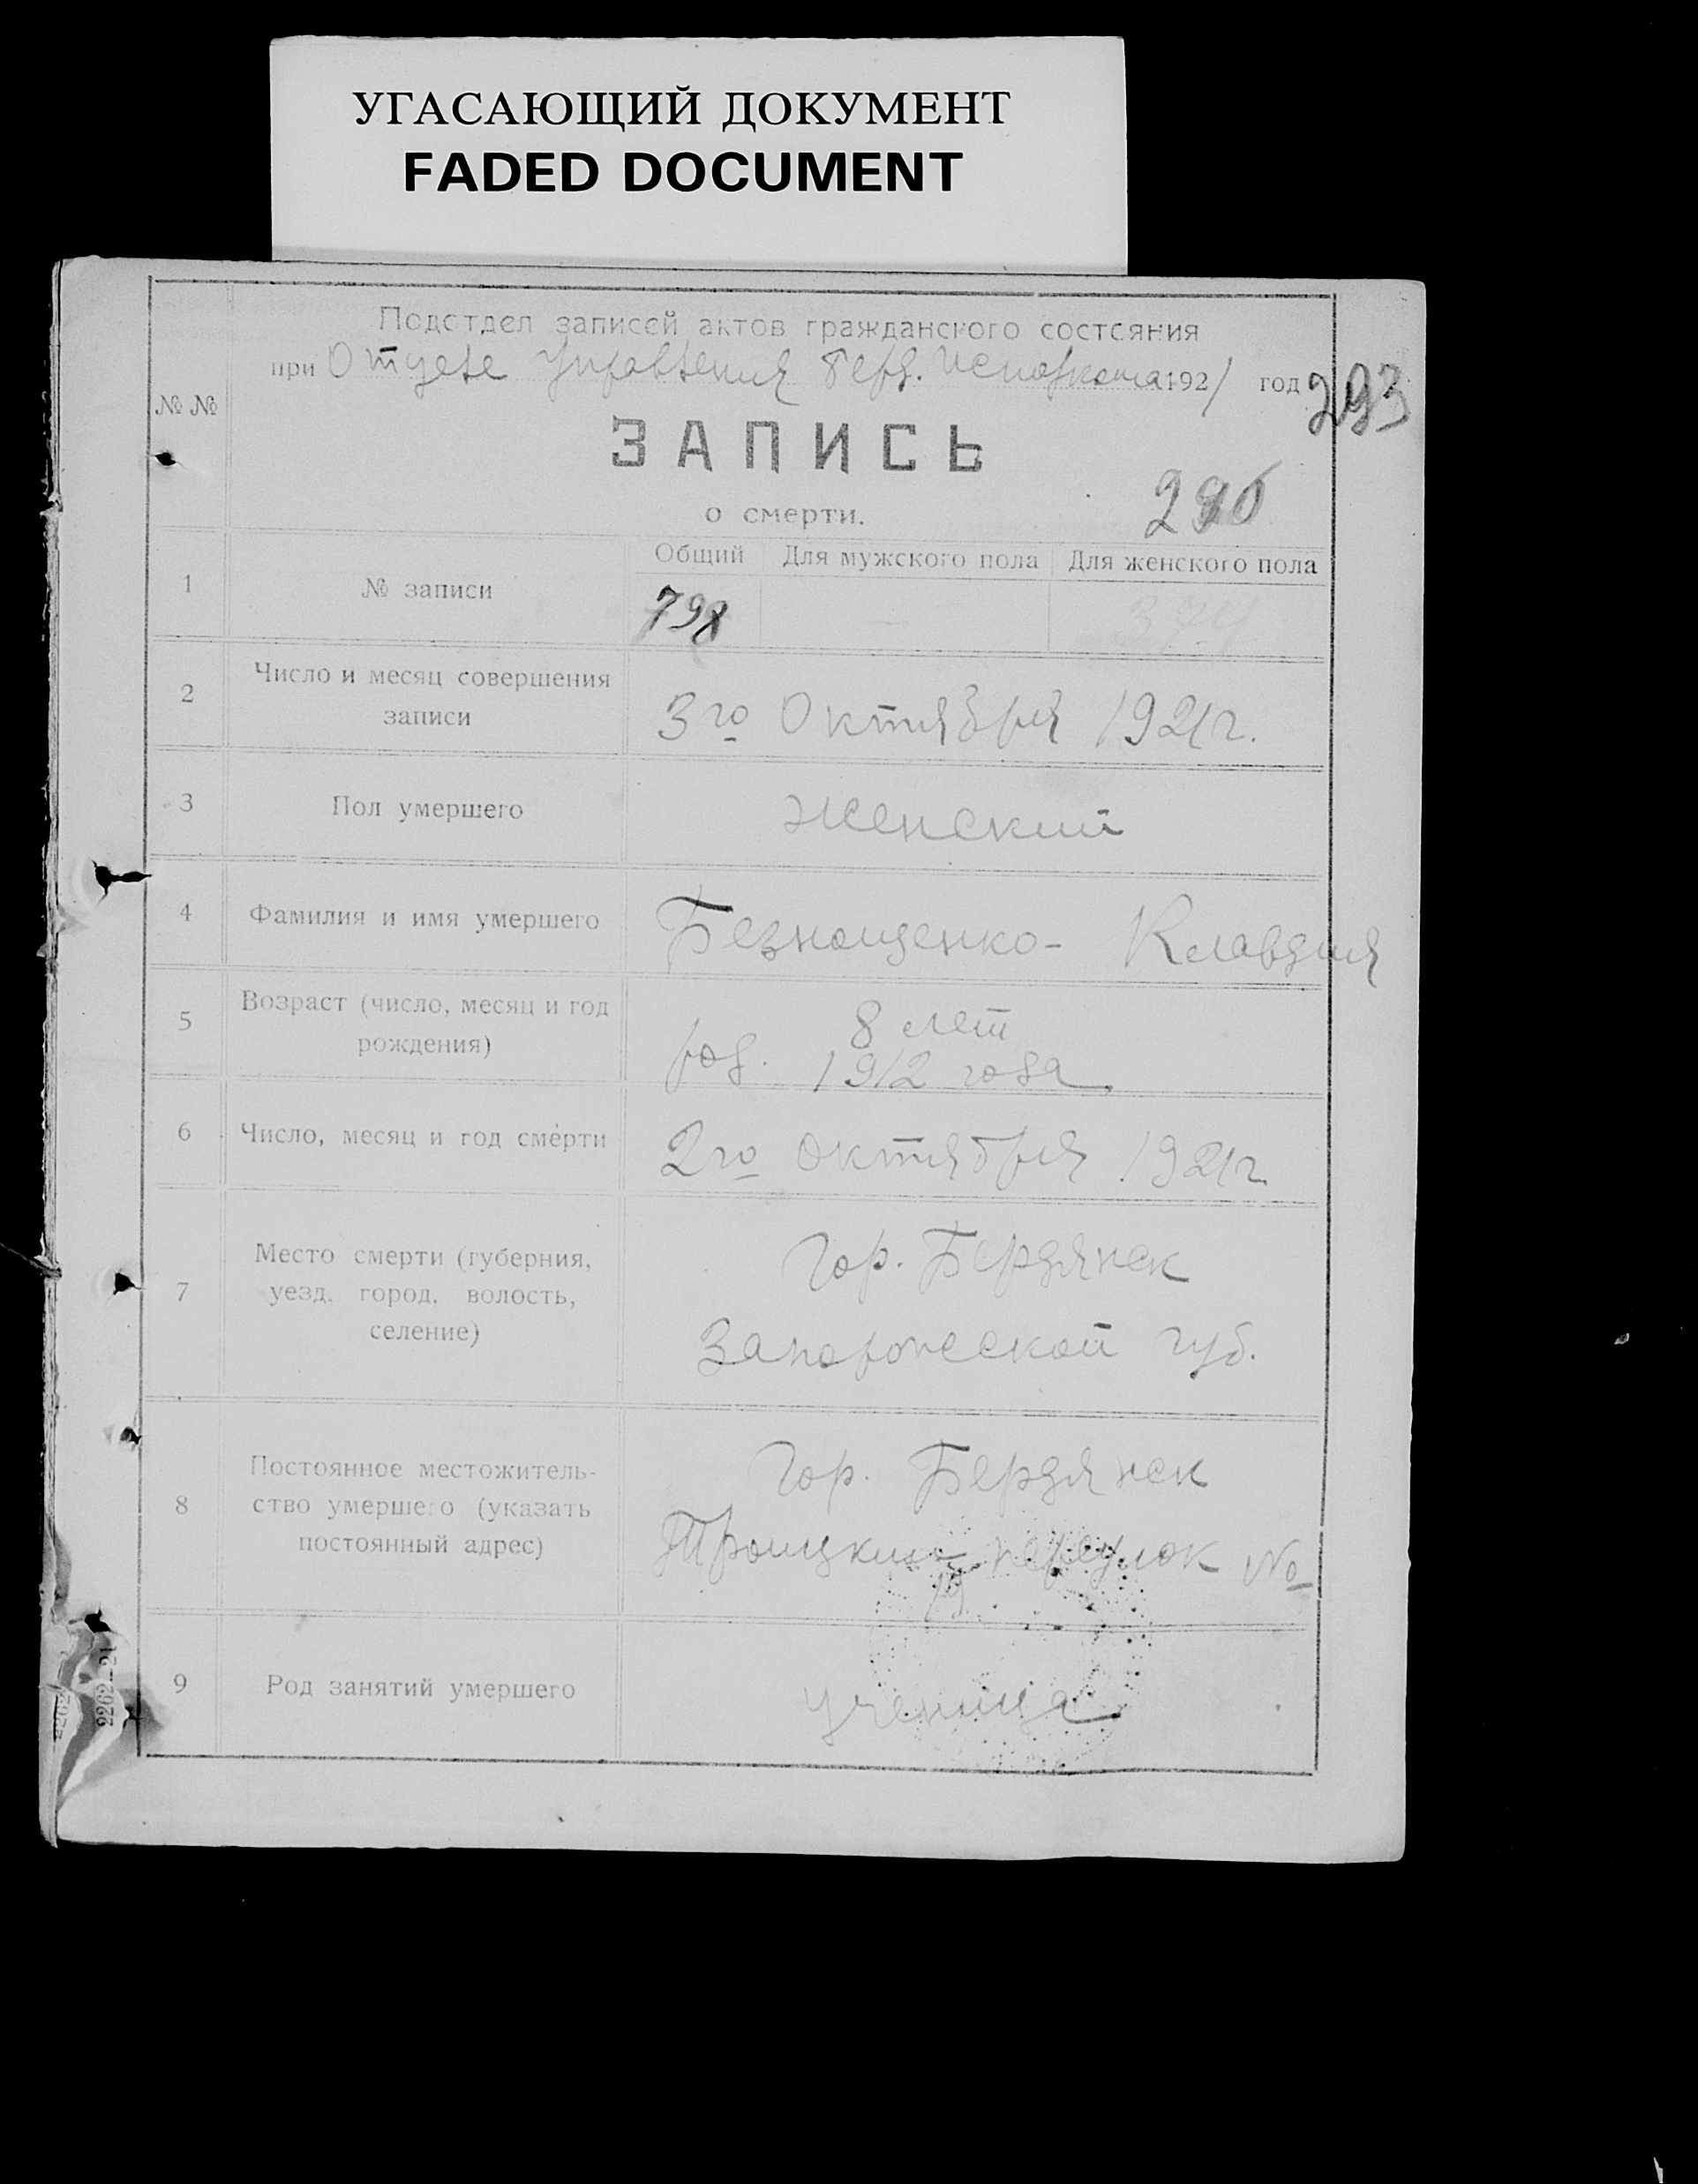 УГАСАЮЩИЙ ДОКУМЕНТ
FADED DOCUMENT
Подотдел записей актов гражданского состояния
при Отделе Управления Берд. Исполкома 1921 год
293
№№
ЗАПИСЬ
о смерти.
Общий Для мужского пола Для женского пола
1 № записи 798
2 Число и месяц совершения
записи
3го Октября 1921г.
3 Пол умершего женский
4 Фамилия и имя умершего Безнощенко- Клавдия
5 Возраст (число, месяц и год
рождения)
8 лет
род. 1912 года
6 Число, месяц и год смерти 2го октября 1921г.
7 Место смерти (губерния,
уезд, город, волость,
селение)
Гор. Бердянск
Запорожской губ.
8 Постоянное местожитель-
ство умершего (указать
постоянный адрес)
Гор. Бердянск
Троицкий переулок №
9 Род занятий умершего ученица
2262—21